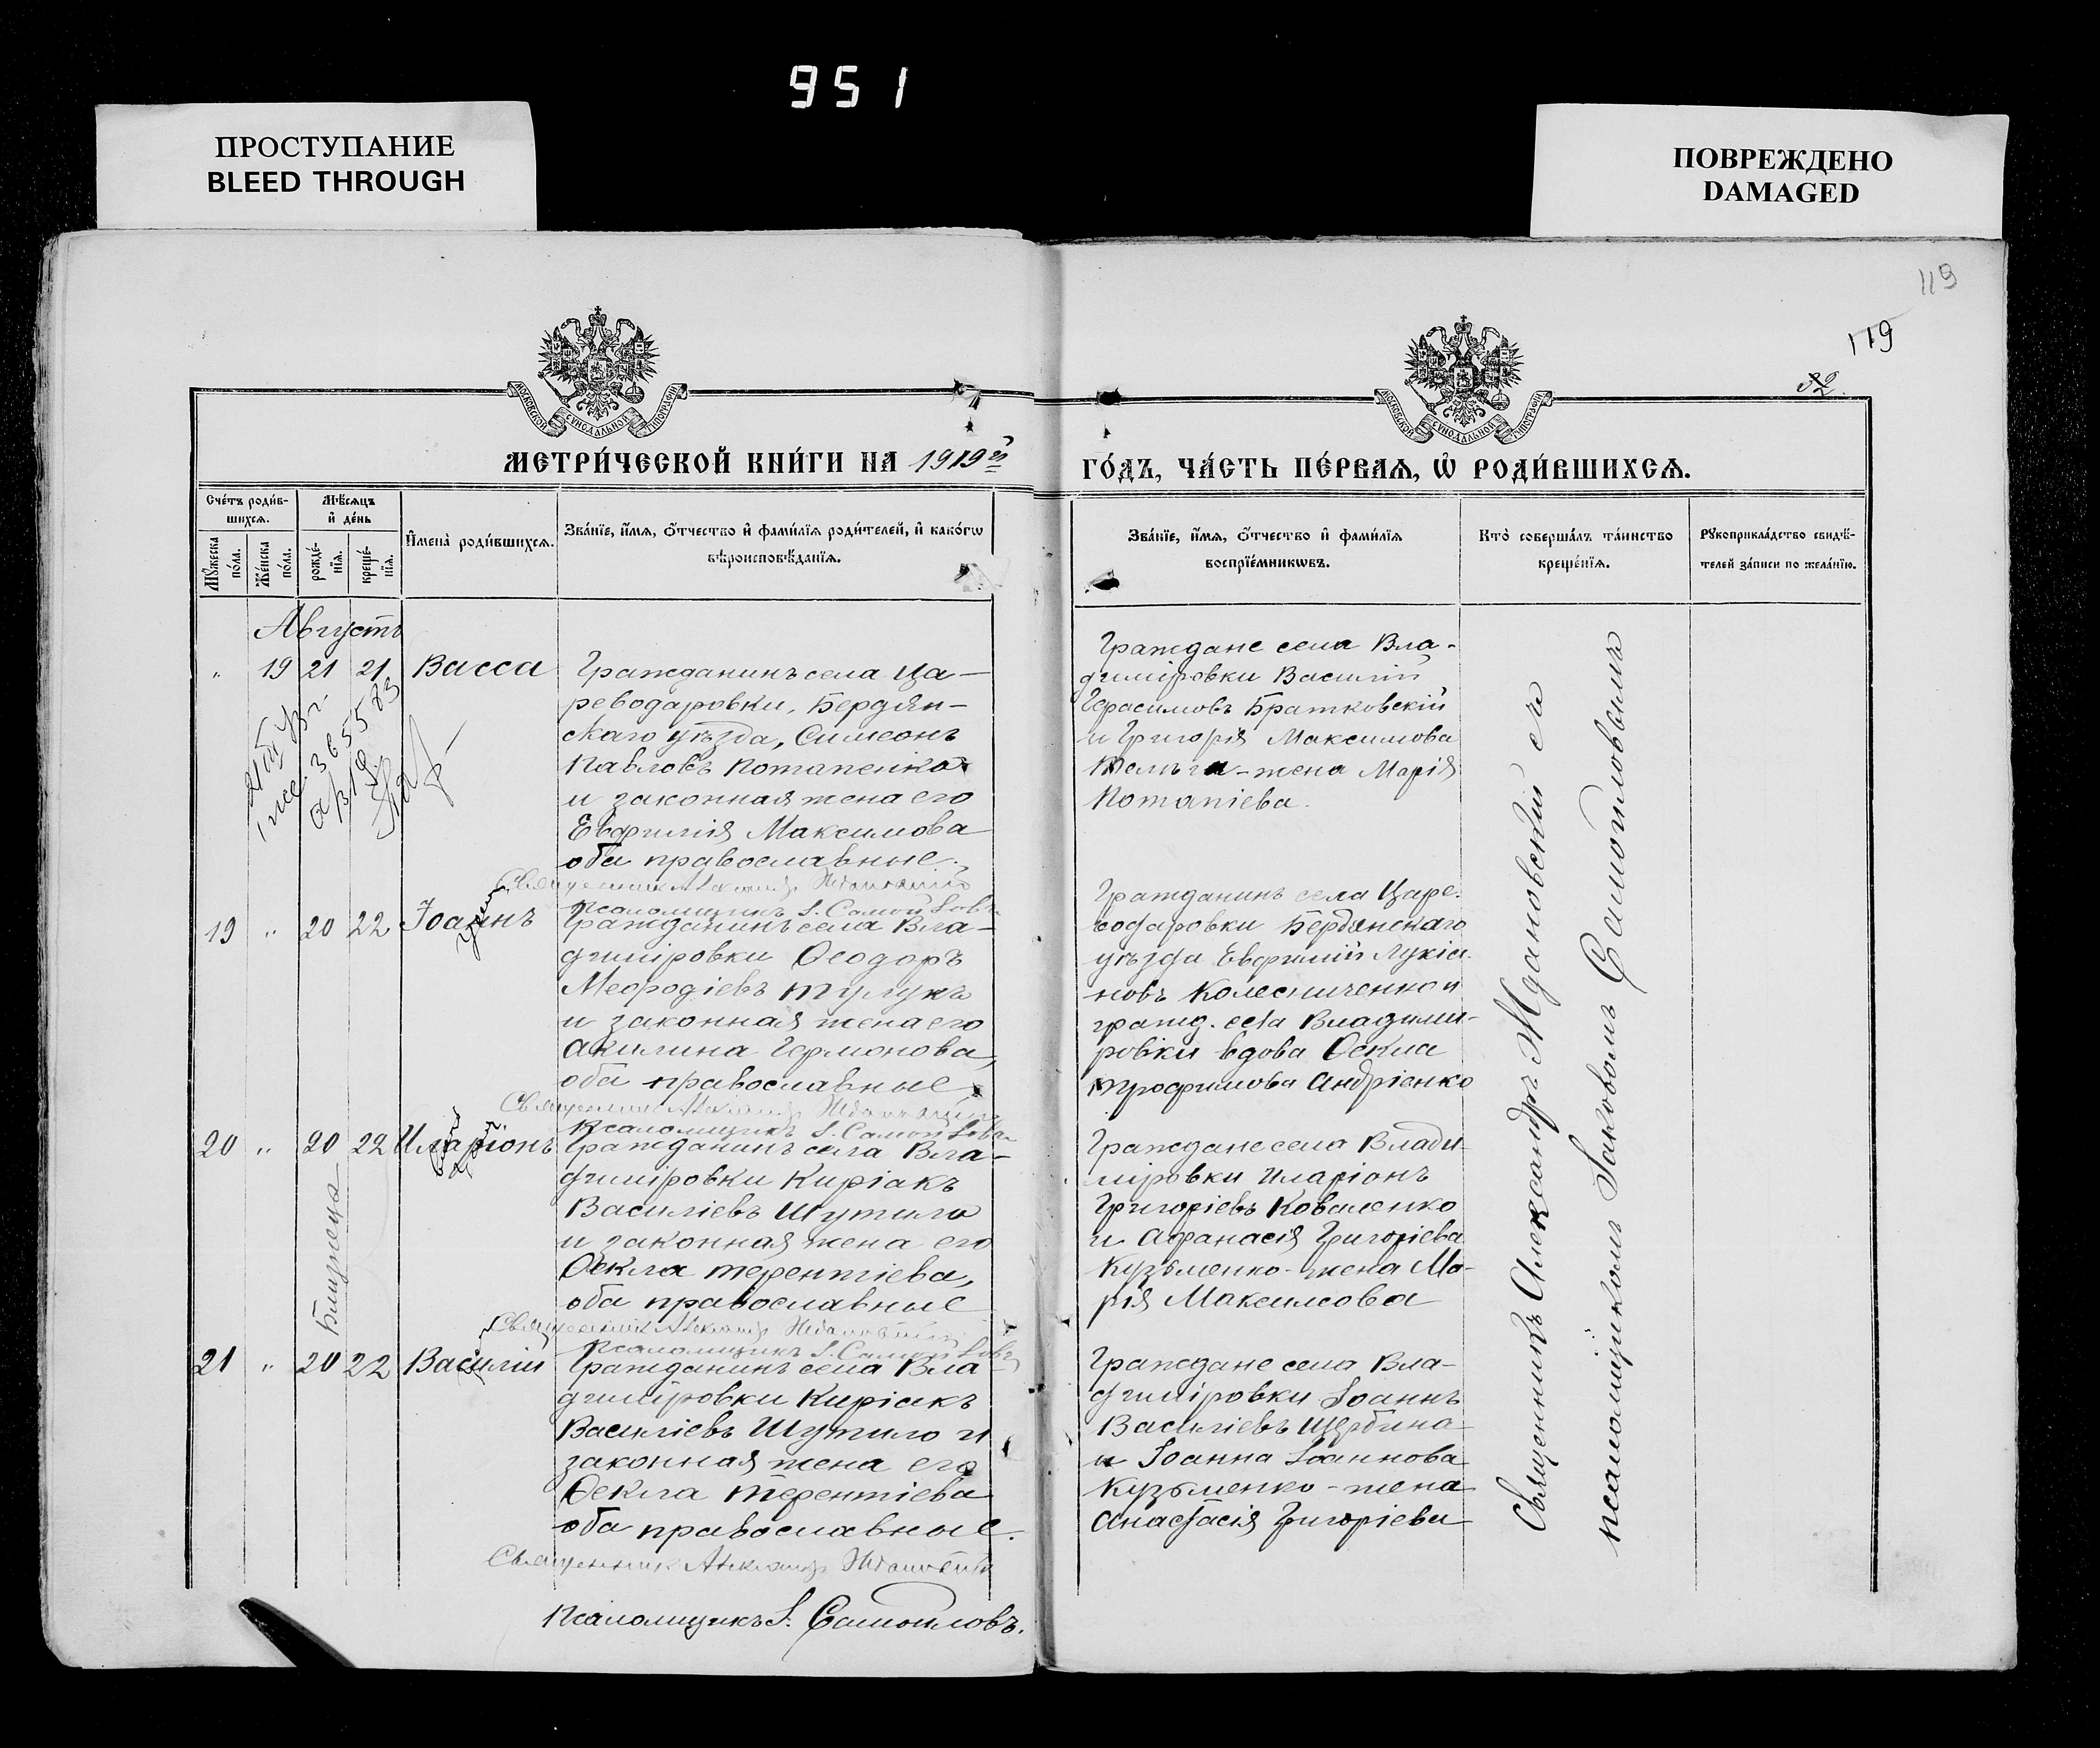 951
ПРОСТУПАНИЕ
BLEED THROUGH
ПОВРЕЖДЕНО
DAMAGED
119
119
32
МОСКОВСКОЙ СУНОДАЛЬНОЙ ТИПОГРАФІИ
МОСКОВСКОЙ СУНОДАЛЬНОЙ ТИПОГРАФІИ
МЕТРИ́ЧЕСКОЙ КНИ́ГИ НА 1919й
ГО́ДЪ, ЧА́СТЬ ПЕ́РВАѦ, Ѡ РОДИ́ВШИХСѦ.
Сче́тъ роди́в-
шихсѧ.
Мѣ́сѧцъ
и де́нь
Мꙋ́жеска
по́ла.
Же́нска
по́ла.
рожде́-
нїѧ.
креще́-
нїѧ.
Имена̀ роди́вшихсѧ.
Зва́нїе, и́мѧ, о́тчество и фами́лїѧ роди́телей, и како́гѡ
вѣроисповѣ́данїѧ.
Зва́нїе, и́мѧ, о́тчество и фами́лїѧ
воспрїе́мникѡвъ.
Кто̀ соверша́лъ та́инство
креще́нїѧ.
Рꙋкоприкла́дство свидѣ́-
телей за́писи по жела́нїю.
Августъ
„ 19 21 21 Васса
Гражданинъ села Ца-
реводаровки, Бердян-
скаго уѣзда, Симеонъ
Павловъ Потапенко
и законная жена его
Евфимія Максимова
оба православные.
Священникъ Александръ Ждановскій
Псаломщикъ І. Самойловъ
Граждане села Вла-
диміровки Василій
Герасимовъ Братковскій
и Григорія Максимова
жена Марія
Потапіева.
19 „ 20 22 Іоаннъ
Гражданинъ села Вла-
диміровки Ѳеодоръ
Меѳодіевъ Тулукъ
и законная жена его
Акилина Гермонова,
оба православные
Священникъ Александръ Ждановскій
Псаломщикъ І. Самойловъ
Гражданинъ села Царе-
водаровки Бердянскаго
уѣзда Евфимій Лукіа-
новъ Колесниченко и
гражд. села Владими-
ровки вдова Ѳекла
Трофимова Андріенко
20 „ 20 22 Иларіонъ
Близнеца
Гражданинъ села Вла-
диміровки Киріакъ
Василіевъ Шутило
и законная жена его
Ѳекла Терентіева,
оба православные
Священникъ Александръ Ждановскій
Псаломщикъ І. Самойловъ
Граждане села Влади-
міровки Иларіонъ
Григоріевъ Коваленко
и Афанасія Григоріева
Кузьменко-жена Ма-
рія Максимова
21 „ 20 22 Василій
Гражданинъ села Вла-
диміровки Киріакъ
Василіевъ Шутило и
законная жена его
Ѳекла Терентіева
оба православные.
Священникъ Александръ Ждановскій
Псаломщикъ І. Самойловъ.
Граждане села Вла-
диміровки Іоаннъ
Василіевъ Щербина
и Іоанна Іоаннова
Кузьменко-жена
Анастасія Григоріева
Священникъ Александръ Ждановскій съ
псаломщикомъ Іаковомъ Самойловымъ